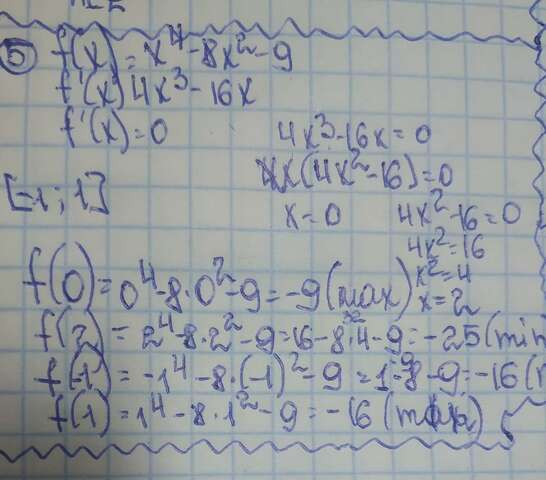 5 f(x)=x⁴-8x²-9
f'(x) 4x³-16x
f'(x)=0
4x³-16x=0
x(4x²-16)=0
[-1; 1]
x=0 4x²-16=0
4x²=16
x²=4
x=2
f(0)=0⁴-8·0²-9=-9 (max)
f(2)=2⁴-8·2²-9=16-8·4-9=-25 (min
f(-1)=-1⁴-8·(-1)²-9=1-8-9=-16 (
f(1)=1⁴-8·1²-9=-16